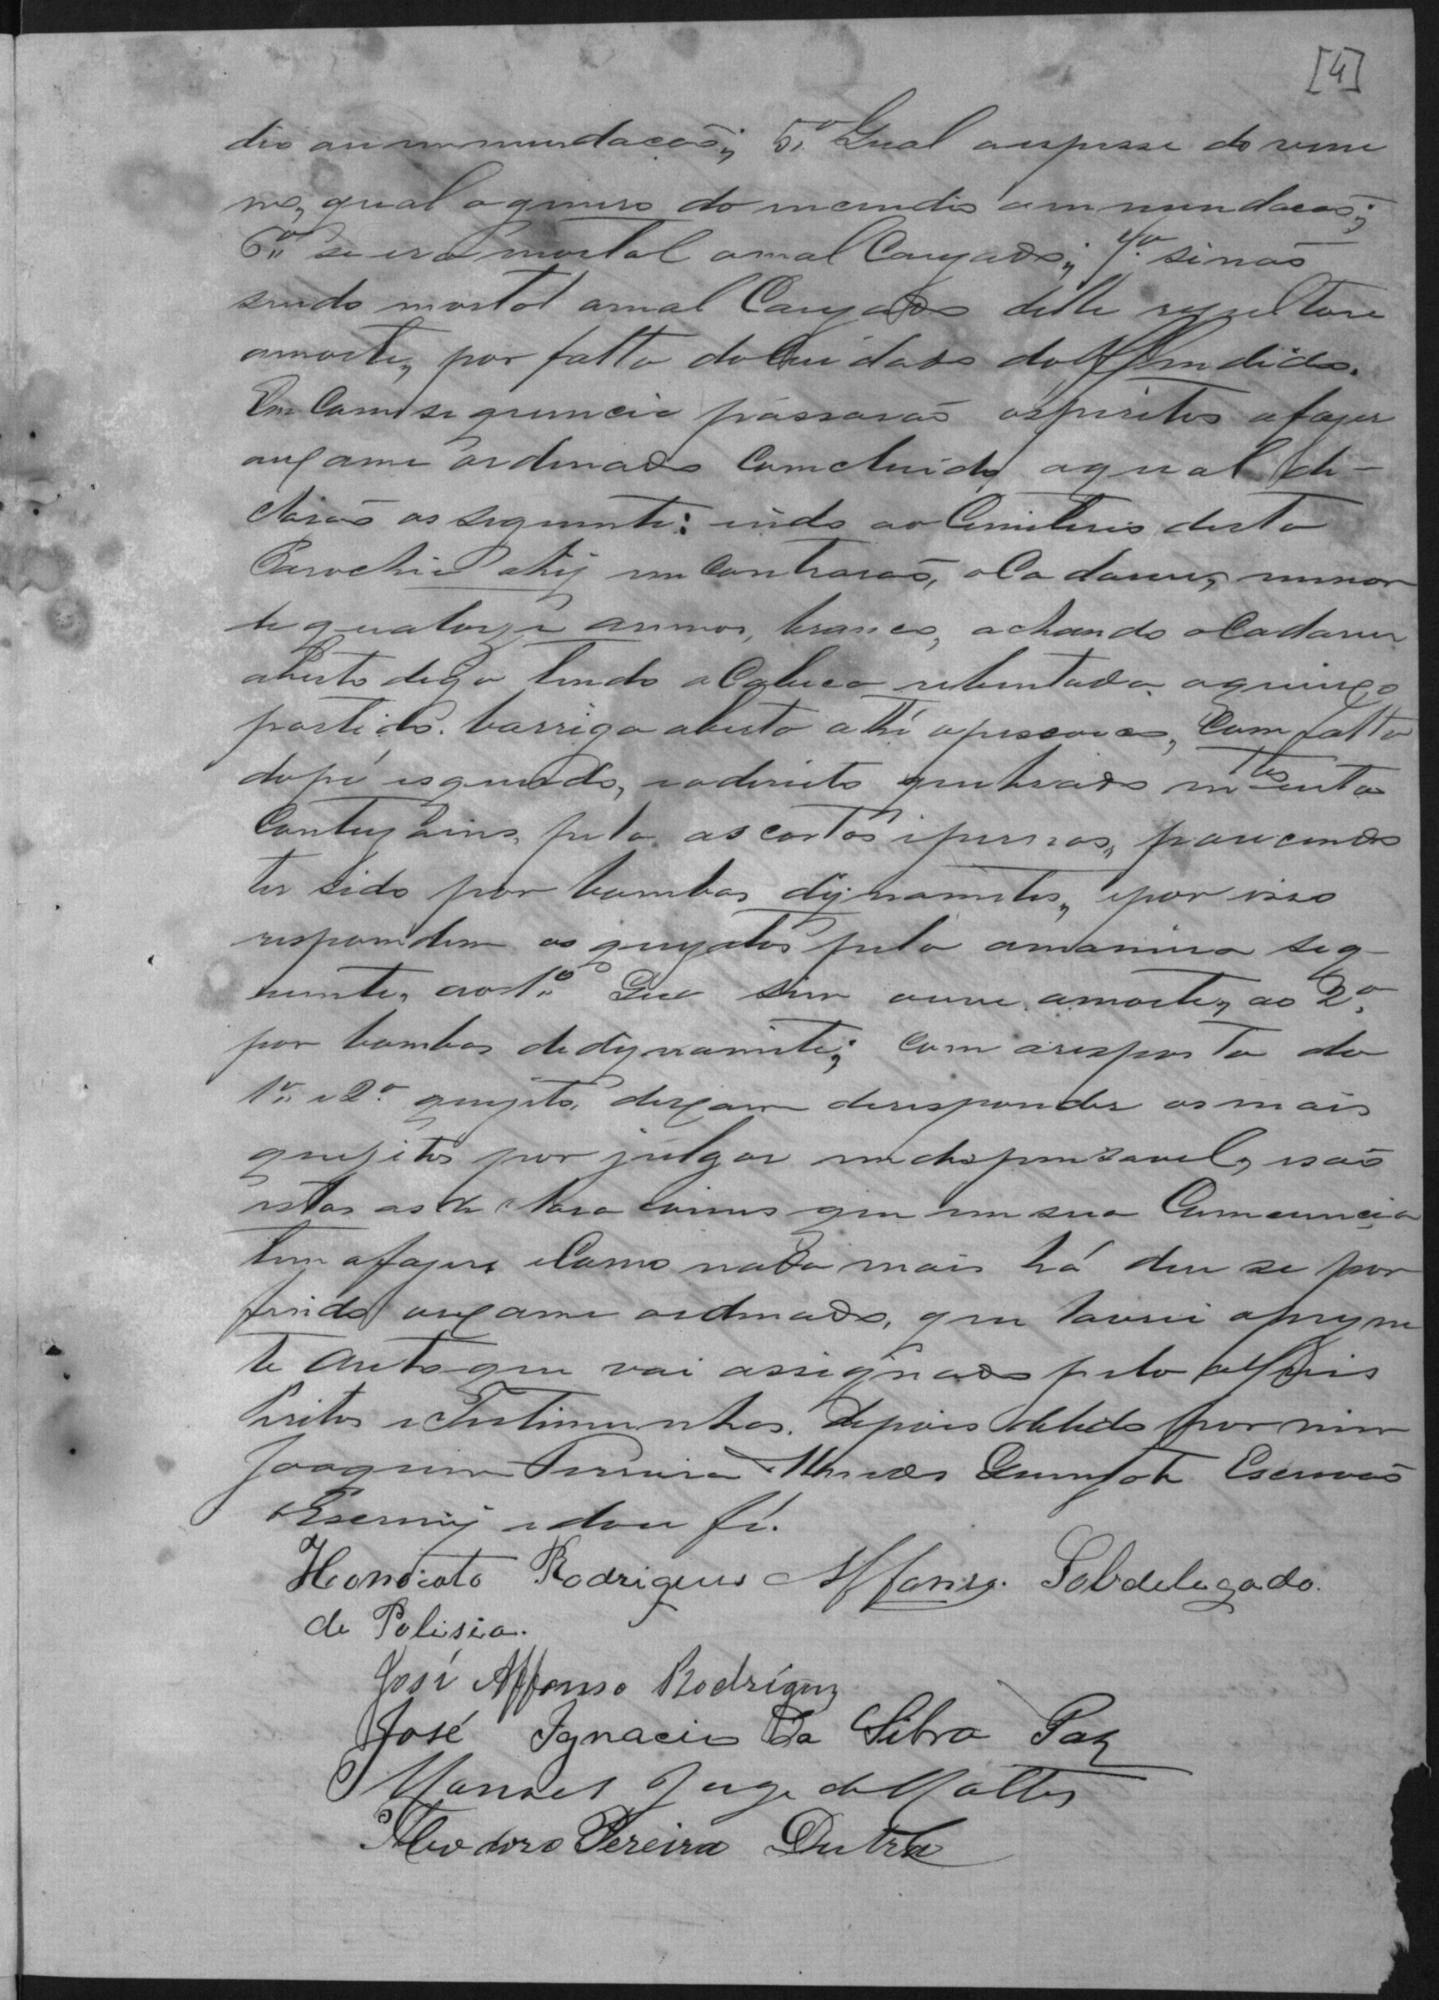 [4]
dio ou innundacaõ; 5.º Qual a espesse do vene
no, qual o genero do incendio ou innundacaõ;
6.º se era mortal o mal Cauzado; 7.º si não
sendo mortal o mal Cauzado delle rezultou
a morte, por falta do Cuidado do Offendido.
Em Comsequencia passarão os peritos a fazer
o exame ordenado comcluido o qual de-
clarão o seguinte: indo ao Cemiterio desta
Parochia ahy emcontrarão, o Cadaver, menor
de quatorze annos, branco, achando o Cadaver
aberto digo tendo a Cabeca rebentada o queixo
partido. barriga aberta athé o pescoco, Com falta
do pé esquerdo, e o direito quebrado m.tas
Contuzoins, pela as costas e pernas, parecendo
ter sido por bombas dynamites, e por isso
respondem os quezitos pela a maneira seg-
uinte, ao 1.º Que sim ouve a morte, ao 2.º
por bombas de dynamite; com a resposta do
1.º e 2.º quezito, deixam de responder os mais
quezitos por julgar indespensavel, e são
estas as declaracoins que em sua Comciencia
tem a fazer, e Como nada mais há deu se por
findo o exame ordenado, que lavrei o prezen
te Auto que vai assignado pelo
Peritos e Testimunhas. depois de lido por mim
Joaquim Ferreira Escrivão
o Escrevy e dou fé.
Honorato Rodrigues Affonso. Sobdelegado.
de Polisia.
José Affonso Rodrigues
José Ignacio Da Silva Paz
Manoel Jorge de Mattos
Theodoro Pereira Dutra